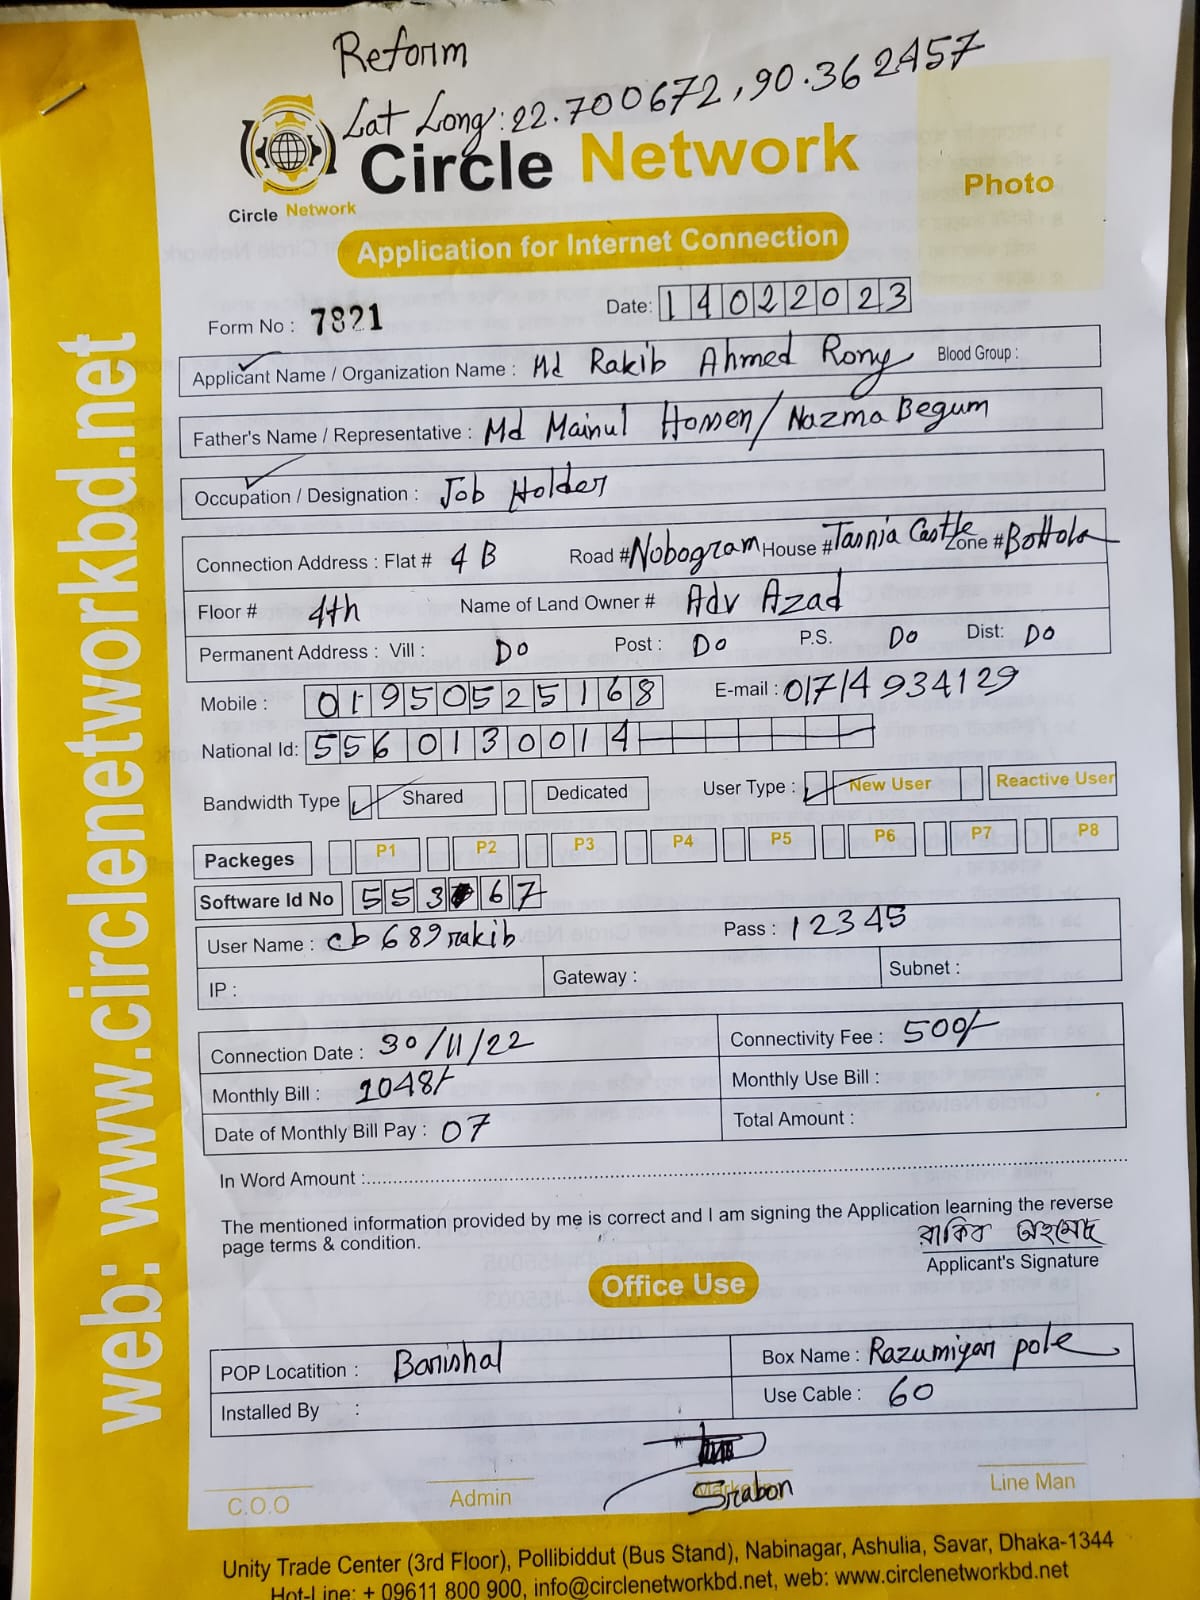 Reform
Lat Long: 22.700672, 90.362457
Circle Network
Circle Network
Photo
Application for Internet Connection
Form No : 7821
Date: 14022023
Applicant Name / Organization Name : Md Rakib Ahmed Rony Blood Group :
Father's Name / Representative : Md Mainul Hossen / Nazma Begum
Occupation / Designation : Job Holder
Connection Address : Flat # 4 B Road # Nobogram House # Tasnia Castle Zone # Bottola
Floor # 4th Name of Land Owner # Adv Azad
Permanent Address : Vill : Do Post : Do P.S. Do Dist: Do
Mobile : 01950525168 E-mail : 01714934129
National Id: 5560130014
Bandwidth Type Shared Dedicated User Type : New User Reactive User
Packeges P1 P2 P3 P4 P5 P6 P7 P8
Software Id No 553 67
User Name : cb689rakib Pass : 12345
IP : Gateway : Subnet :
Connection Date : 30/11/22 Connectivity Fee : 500/-
Monthly Bill : 1048/- Monthly Use Bill :
Date of Monthly Bill Pay : 07 Total Amount :
In Word Amount :
The mentioned information provided by me is correct and I am signing the Application learning the reverse
page terms & condition.
রাকিব আহমেদ
Applicant's Signature
Office Use
POP Locatition : Barishal Box Name : Razumiyar pole
Installed By : Use Cable : 60
Srabon
C.O.O Admin Line Man
Unity Trade Center (3rd Floor), Pollibiddut (Bus Stand), Nabinagar, Ashulia, Savar, Dhaka-1344
Hot-Line: + 09611 800 900, info@circlenetworkbd.net, web: www.circlenetworkbd.net
web: www.circlenetworkbd.net